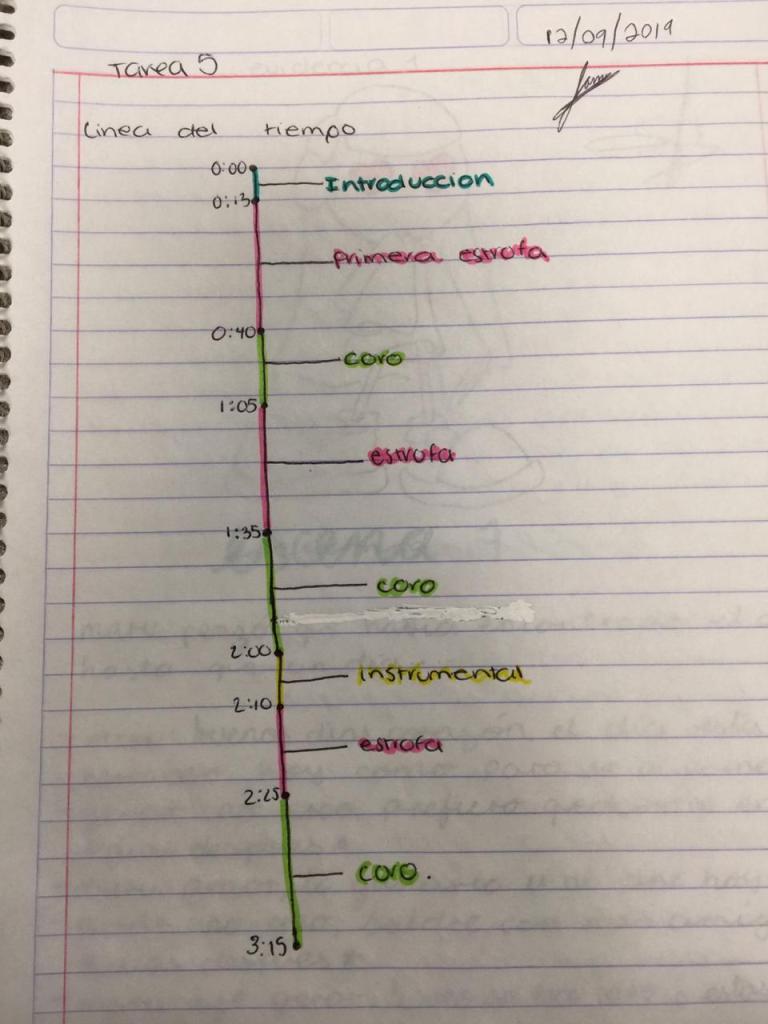 12/09/2019
Tarea 5
Linea del tiempo
0:00
Introduccion
0:13
primera estrofa
0:40
coro
1:05
estrofa
1:35
coro
2:00
instrumental
2:10
estrofa
2:25
coro.
3:15